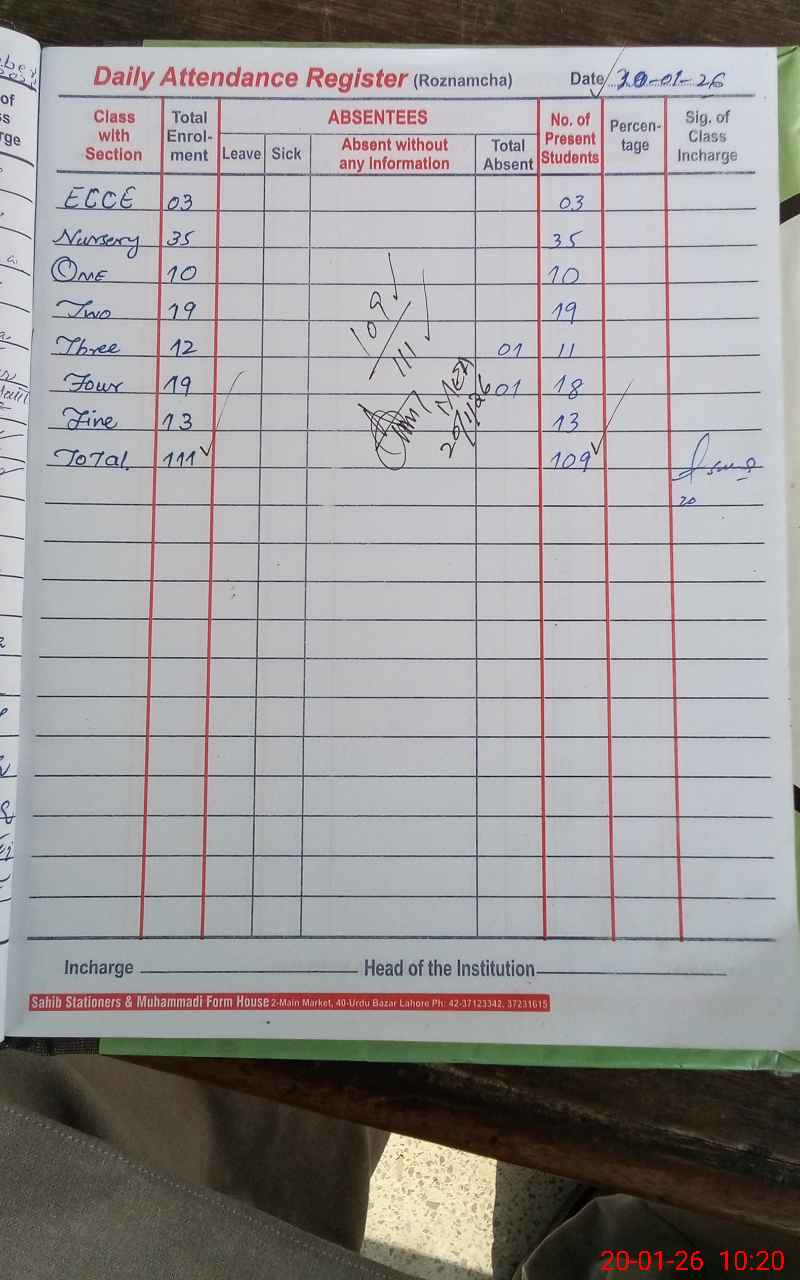 Daily Attendance Register (Roznamcha) Date 20-01-26
Class with Section Total Enrol-ment ABSENTEES No. of Present Students Percen-tage Sig. of Class Incharge
Leave Sick Absent without any information Total Absent
ECCE 03 03
Nursery 35 35
One 10 10
Two 19 19
Three 12 01 11
Four 19 01 18
Five 13 13
Total 111 109
109/111
MEA
20/1/26
20
Incharge Head of the Institution
Sahib Stationers & Muhammadi Form House 2-Main Market, 40-Urdu Bazar Lahore Ph: 42-37123342, 37231615
20-01-26 10:20